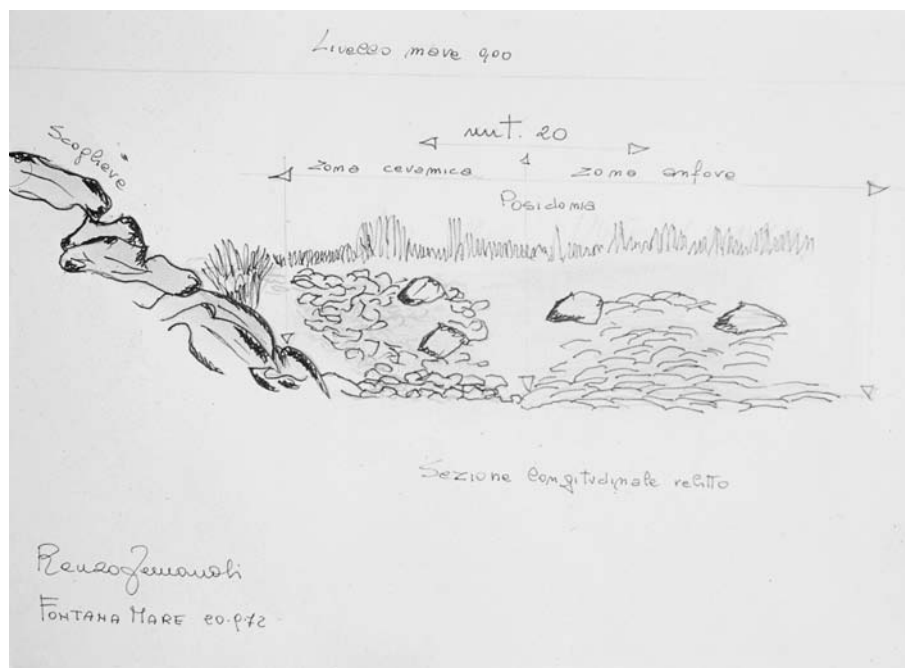 Livello mare 0,00
Scogliere
mt. 20
Zona ceramica
Zona anfore
Posidonia
Sezione longitudinale relitto
Renzo
FONTANA MARE 20.9.72